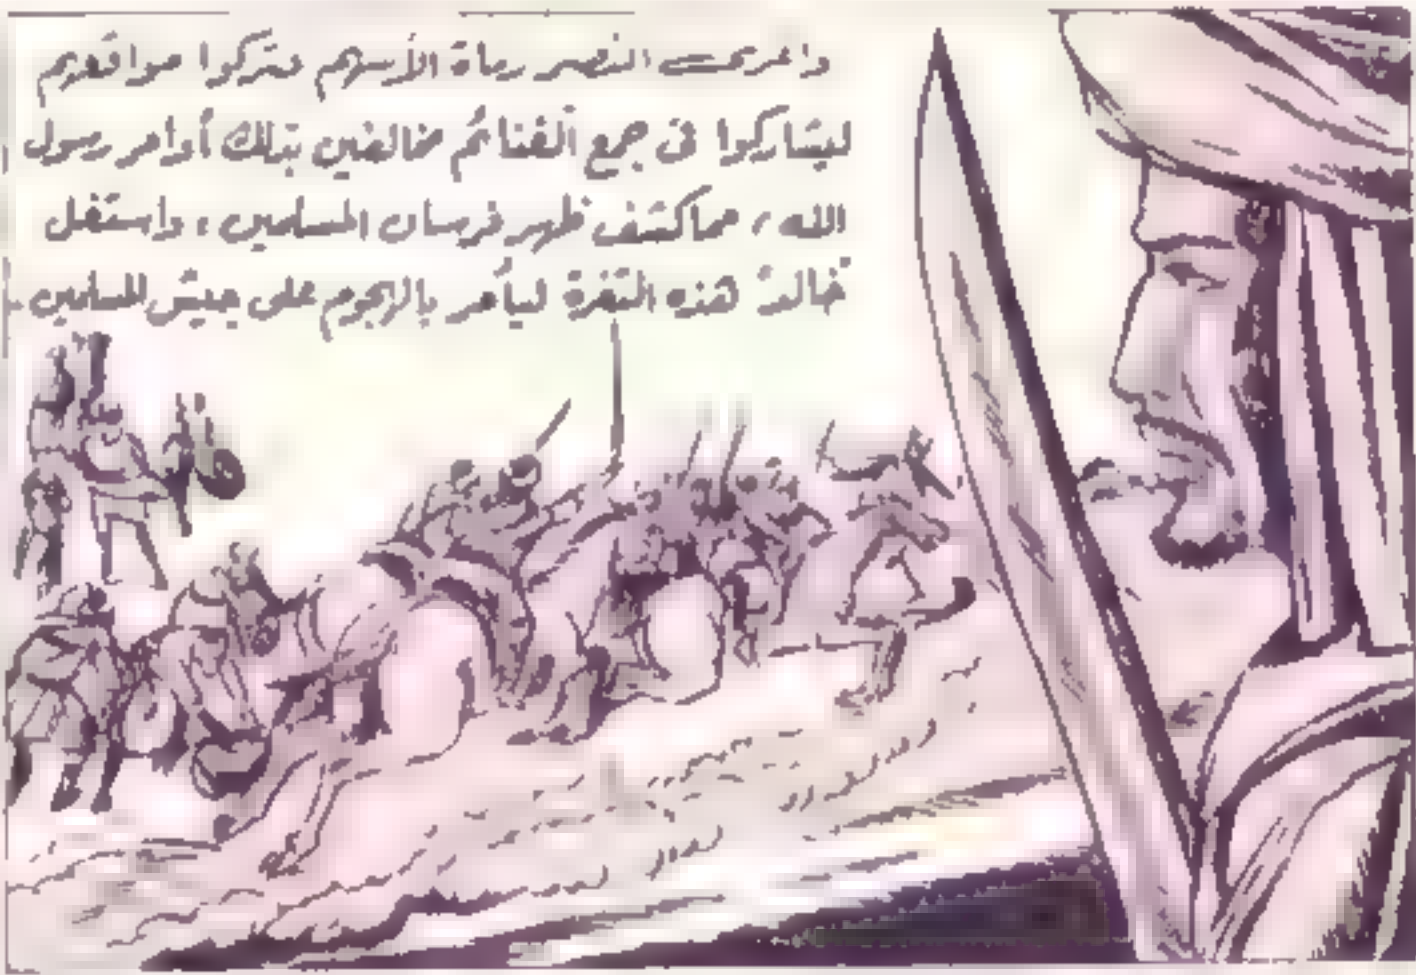 وأغرى النصر رماة الأسهم فتركوا مواقعهم
ليشاركوا فى جمع الغنائم مخالفين بذلك أوامر رسول
الله ، مما كشف ظهر فرسان المسلمين ، واستغل
خالدٌ هذه الثغرة ليأمر بالهجوم على جيش المسلمين